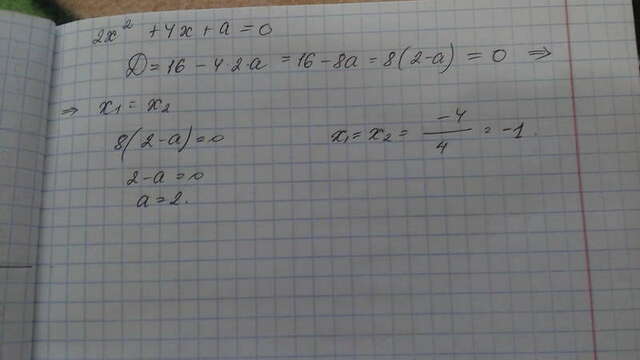 2x² + 4x + a = 0
D = 16 - 4·2·a = 16 - 8a = 8(2-a) = 0 ⇒
⇒ x₁ = x₂
8(2-a) = 0
2-a = 0
a = 2.
x₁ = x₂ = -4/4 = -1.